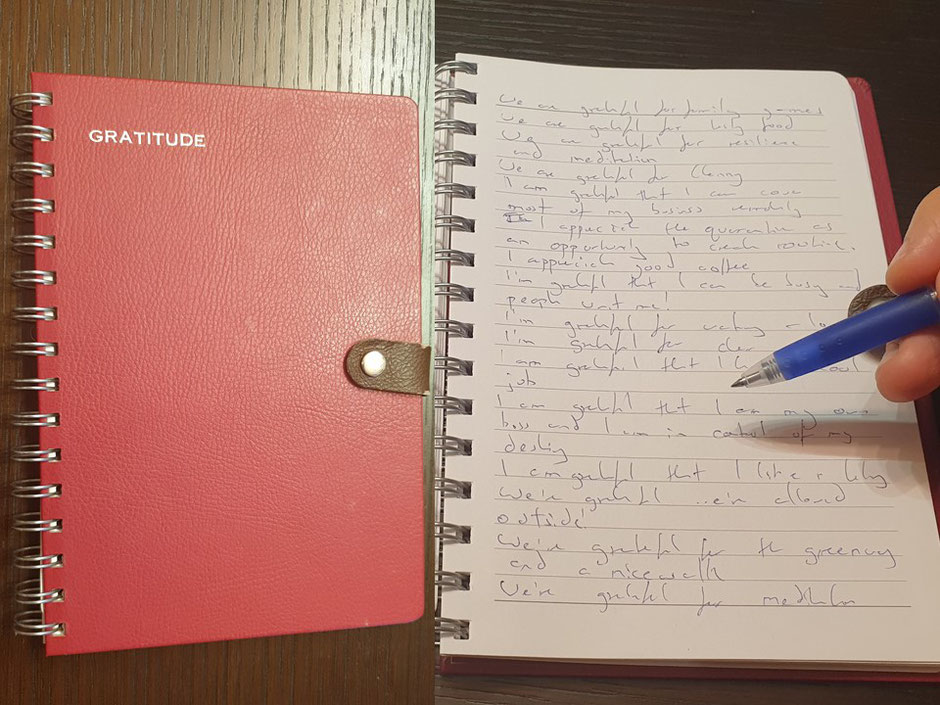 GRATITUDE
We are grateful for family games
We are grateful for tasty food
We are grateful for resilience
and meditation
We are grateful for
I am grateful that I can
most of my business remotely
I appreciate the quarantine as
an opportunity to create routine.
I appreciate good coffee
I'm grateful that I can be busy and
people want me!
I'm grateful for
I'm grateful for
I am grateful that I
job
I am grateful that I am my own
boss and I am in control of my
destiny
I am grateful that I
We're grateful allowed
outside!
We're grateful for the greenery
and a nice walk
We're grateful for meditation